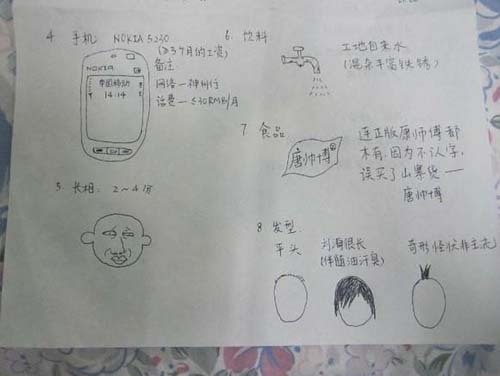 4. 手机 NOKIA 5230
(≥3个月的工资)
备注
网络—神州行
话费—≤30RMB/月
NOKIA
中国移动
14:14
5. 长相: 2~4分
6. 饮料
工地自来水
(混杂丰富铁锈)
7. 食品
唐帅博®
连正版康师傅都
木有.因为不认字,
误买了山寨货——
唐帅博
8 发型
平头
刘海很长
(伴随油汗臭)
奇形怪状非主流